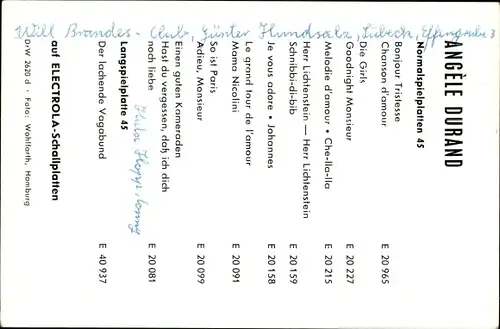 Will Brandes - Club, Günter Hundsalz, Lübeck, Effengrube 3
ANGÈLE DURAND
Normalspielplatten 45
Bonjour Tristesse
Chanson d'amour E 20 965
Die Girls
Goodnight Monsieur E 20 227
Melodie d'amour • Che-lla-lla E 20 215
Herr Lichtenstein — Herr Lichtenstein
Schnibbi-di-bib E 20 159
Je vous adore • Johannes E 20 158
Le grand tour de l'amour
Mama Nicolini E 20 091
So ist Paris
Adieu, Monsieur E 20 099
Einen guten Kameraden
Hast du vergessen, daß ich dich
noch liebe E 20 081
Langspielplatte 45
Der lachende Vagabund E 40 937
auf ELECTROLA-Schallplatten
DrW 2620 d • Foto: Wohlfarth, Hamburg